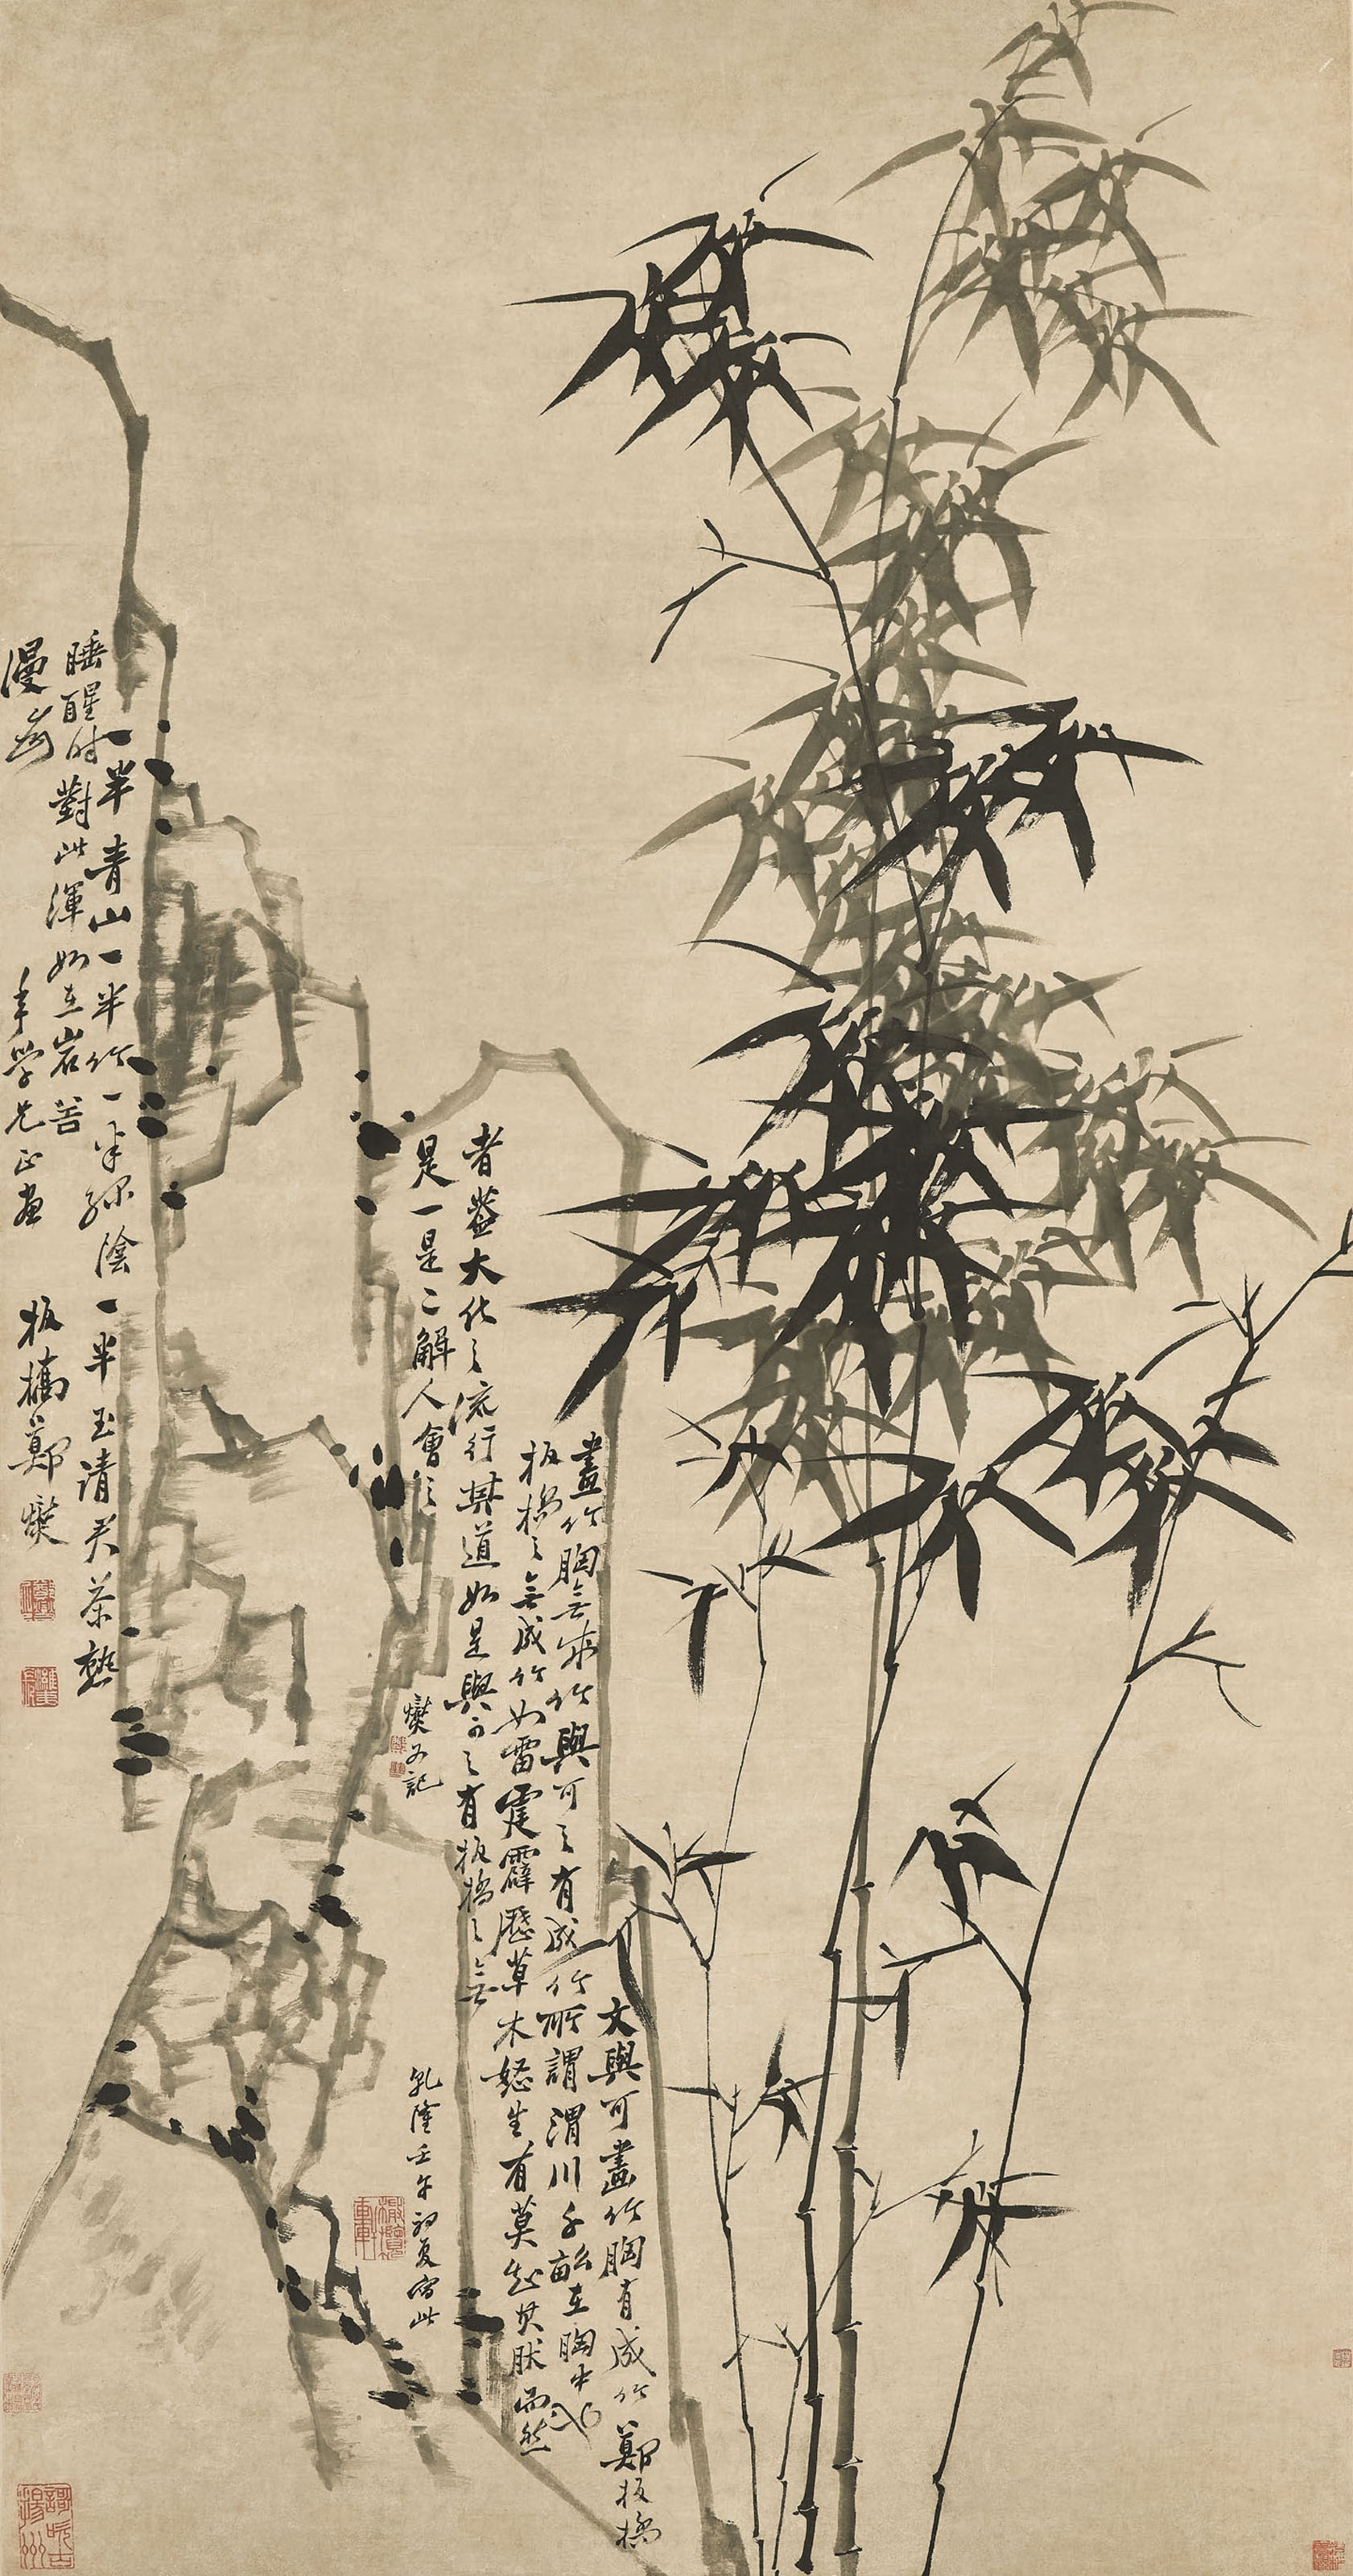 文與可畫竹胸有成竹鄭板橋
畫竹胸無成竹與可之有成竹所謂渭川千畝在胸中也
板橋之無成竹如雷霆霹歷草木怒生有莫知其然而然
者蓋大化之流行其道如是與可之有板橋之無
是一是二解人會之
燮又記
乾隆壬午初夏寫此
橄欖軒
一半青山一半竹一半綠陰一半玉請君茶熟
睡醒时對此渾如在岩谷
漫為
年學兄正畫
板橋鄭燮
歌吹古揚州